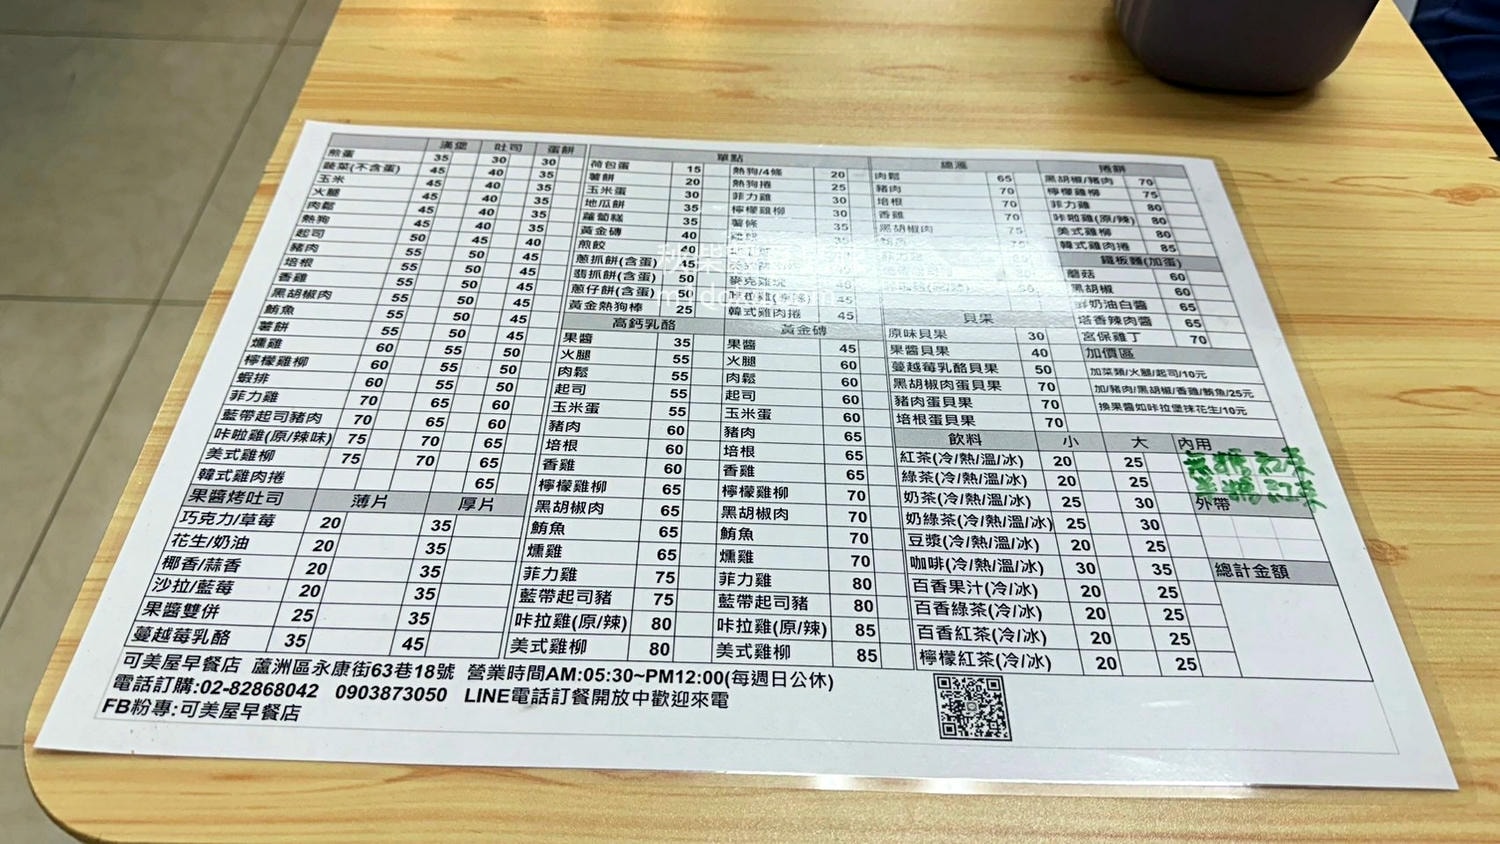 漢堡 吐司 蛋餅
煎蛋 35 30 30
蔬菜(不含蛋) 45 40 35
玉米 45 40 35
火腿 45 40 35
肉鬆 45 40 35
熱狗 45 40 35
起司 50 45 40
豬肉 55 50 45
培根 55 50 45
香雞 55 50 45
黑胡椒肉 55 50 45
鮪魚 55 50 45
薯餅 55 50 45
燻雞 60 55 50
檸檬雞柳 60 55 50
蝦排 60 55 50
菲力雞 70 65 60
藍帶起司豬肉 70 65 60
咔啦雞(原/辣味) 75 70 65
美式雞柳 75 70 65
韓式雞肉捲 65
果醬烤吐司 薄片 厚片
巧克力/草莓 20 35
花生/奶油 20 35
椰香/蒜香 20 35
沙拉/藍莓 20 35
果醬雙併 25 35
蔓越莓乳酪 35 45
單點
荷包蛋 15
薯餅 20
玉米蛋 30
地瓜餅 35
蘿蔔糕 35
黃金磚 40
煎餃 40
蔥抓餅(含蛋)
翡抓餅(含蛋) 50
蔥仔餅(含蛋) 50
黃金熱狗棒 25
熱狗/4條 20
熱狗捲 25
菲力雞 30
檸檬雞柳 30
薯條 35
35
麥克雞塊
45
韓式雞肉捲 45
高鈣乳酪
果醬 35
火腿 55
肉鬆 55
起司 55
玉米蛋 55
豬肉 60
培根 60
香雞 60
檸檬雞柳 65
黑胡椒肉 65
鮪魚 65
燻雞 65
菲力雞 75
藍帶起司豬 75
咔拉雞(原/辣) 80
美式雞柳 80
黃金磚
果醬 45
火腿 60
肉鬆 60
起司 60
玉米蛋 60
豬肉 65
培根 65
香雞 65
檸檬雞柳 70
黑胡椒肉 70
鮪魚 70
燻雞 70
菲力雞 80
藍帶起司豬 80
咔拉雞(原/辣) 85
美式雞柳 85
總滙
肉鬆 65
豬肉 70
培根 70
香雞 70
黑胡椒肉 75
75
菲力雞
貝果
原味貝果 30
果醬貝果 40
蔓越莓乳酪貝果 50
黑胡椒肉蛋貝果 70
豬肉蛋貝果 70
培根蛋貝果 70
捲餅
黑胡椒/豬肉 70
檸檬雞柳 75
菲力雞 80
咔啦雞(原/辣) 80
美式雞柳 80
韓式雞肉捲 85
鐵板麵(加蛋)
蘑菇 60
黑胡椒 60
鮮奶油白醬 65
塔香辣肉醬 65
宮保雞丁 70
加價區
加菜類/火腿/起司/10元
加/豬肉/黑胡椒/香雞/鮪魚/25元
換果醬如咔拉堡抹花生/10元
飲料 小 大
紅茶(冷/熱/溫/冰) 20 25
綠茶(冷/熱/溫/冰) 20 25
奶茶(冷/熱/溫/冰) 25 30
奶綠茶(冷/熱/溫/冰) 25 30
豆漿(冷/熱/溫/冰) 20 25
咖啡(冷/熱/溫/冰) 30 35
百香果汁(冷/冰) 20 25
百香綠茶(冷/冰) 20 25
百香紅茶(冷/冰) 20 25
檸檬紅茶(冷/冰) 20 25
內用
外帶
總計金額
可美屋早餐店 蘆洲區永康街63巷18號 營業時間AM:05:30~PM12:00(每週日公休)
電話訂購:02-82868042 0903873050 LINE電話訂餐開放中歡迎來電
FB粉專:可美屋早餐店